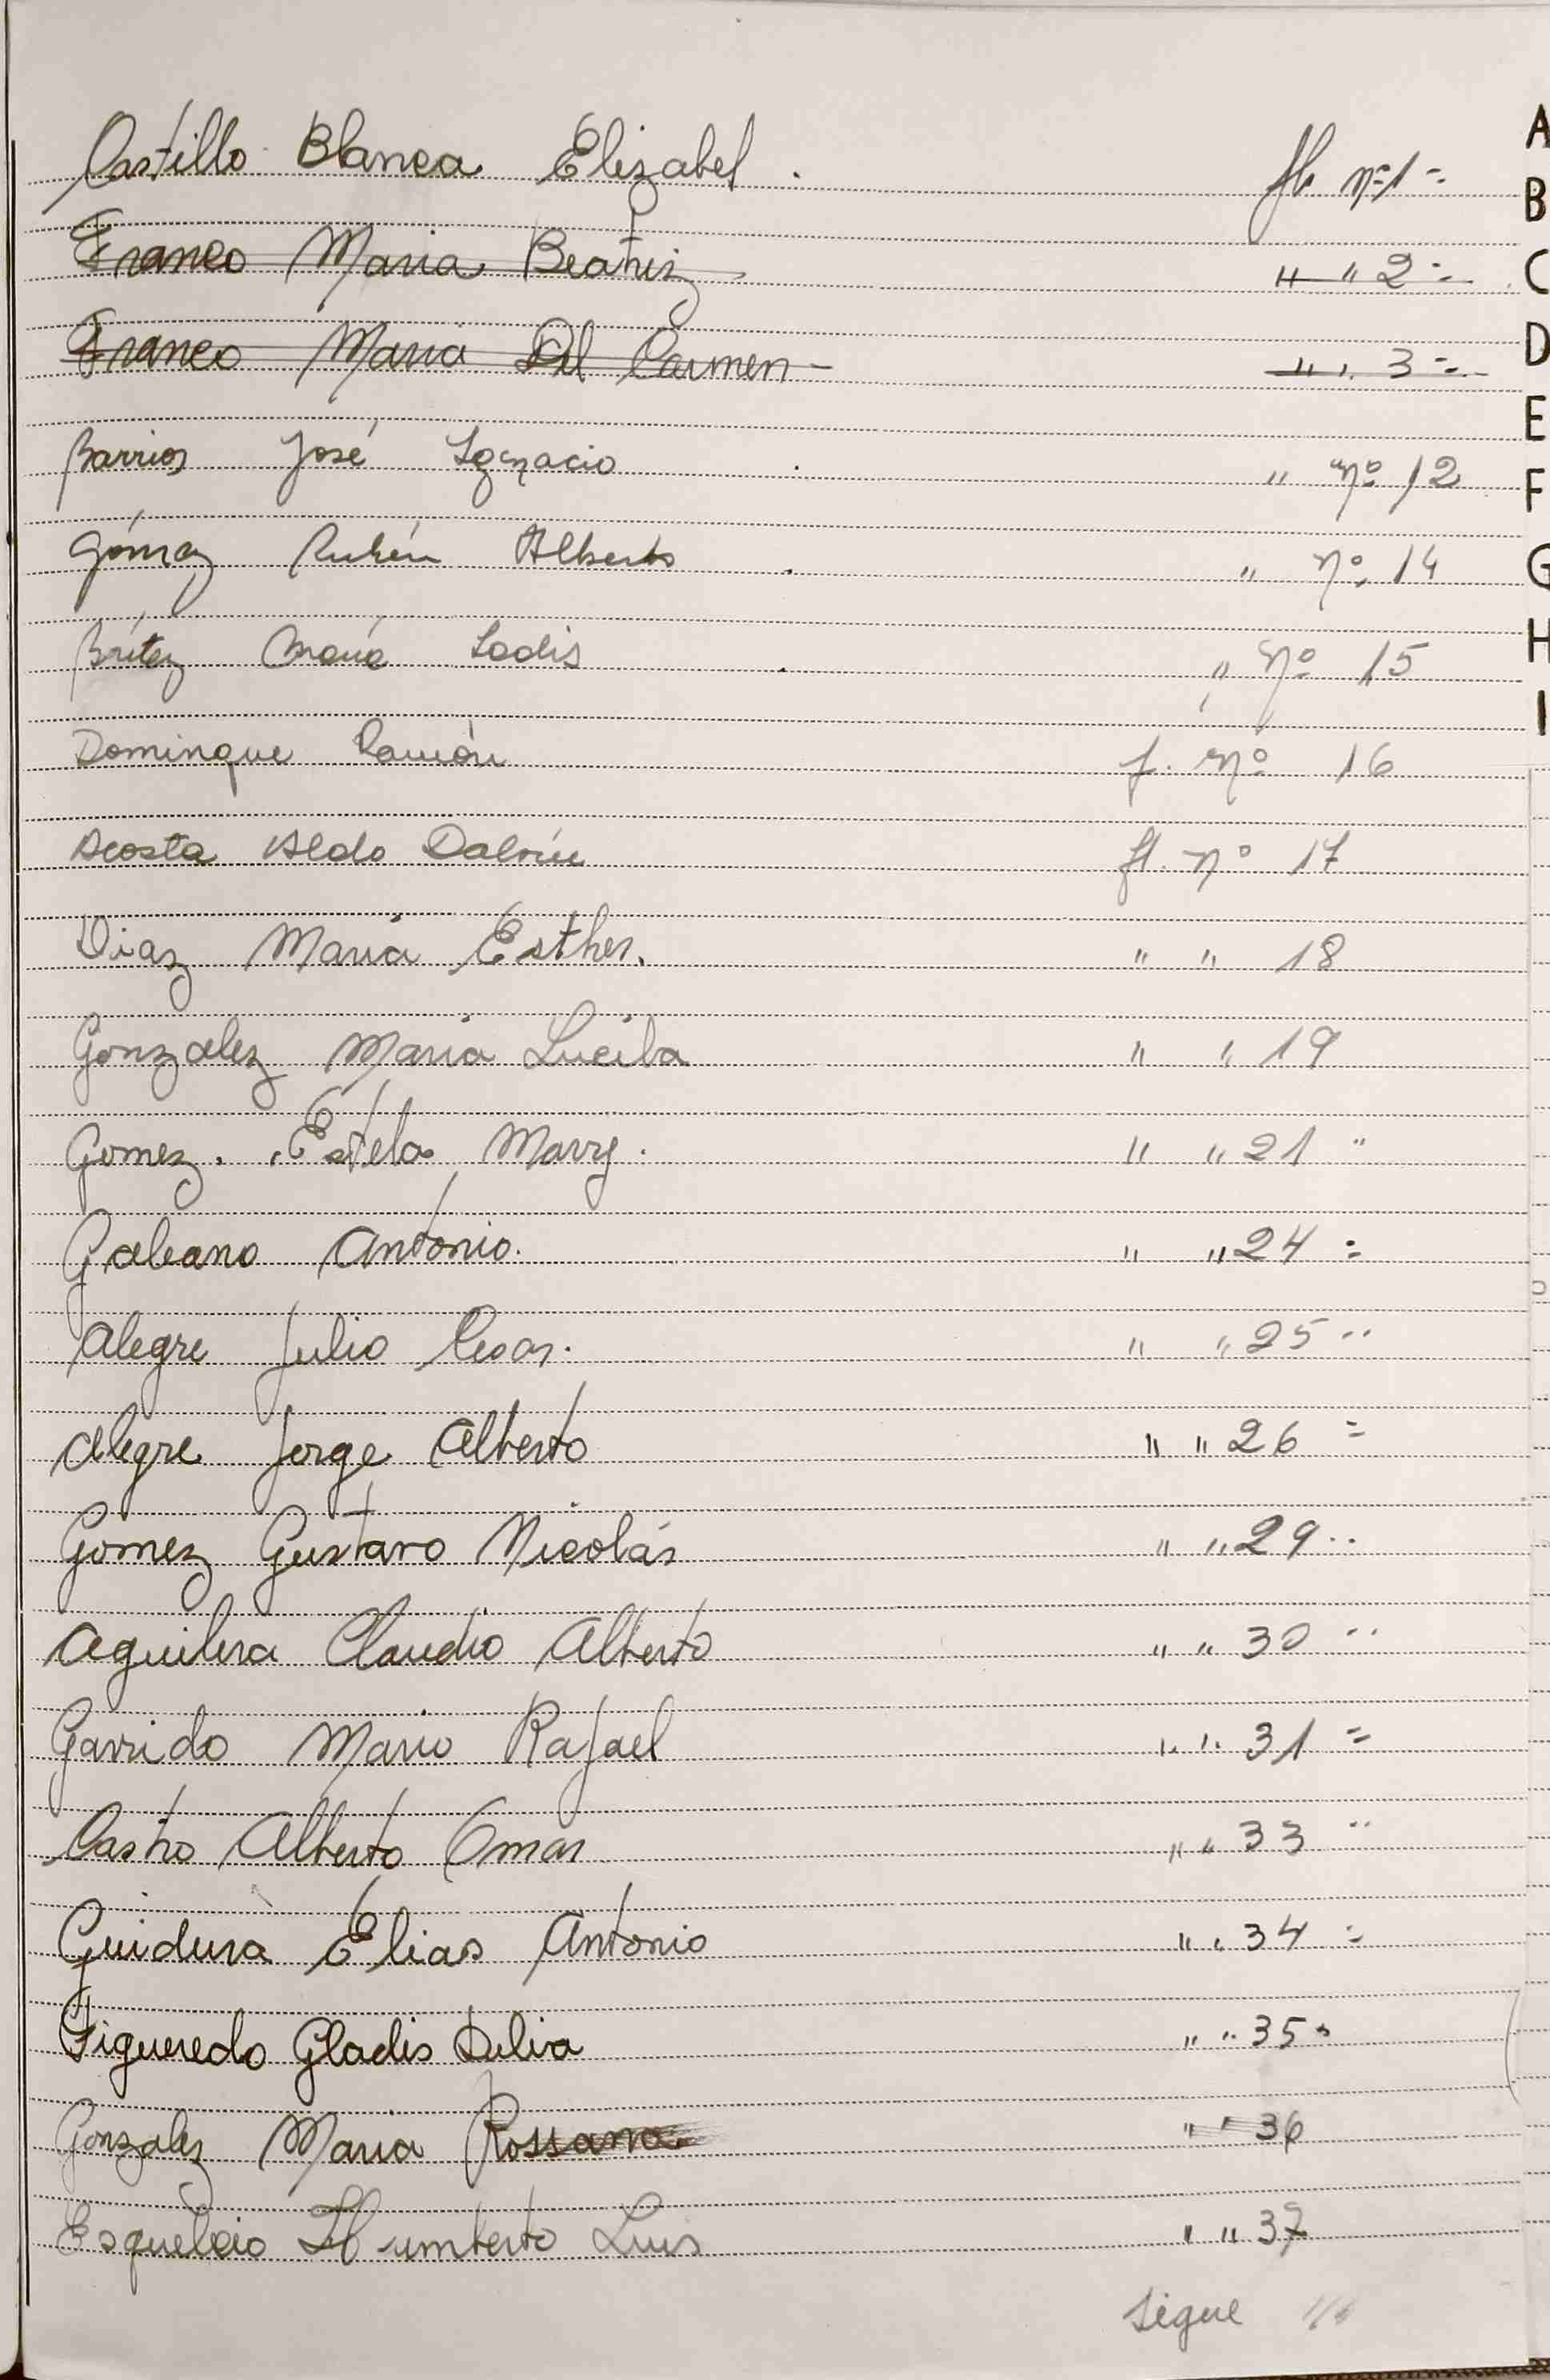 Castillo Blanca Elizabet . fl. nº 1 =
Franco Maria Beatriz " " 2 =
Franco Maria Del Carmen " " 3 =
Barrios José Ignacio . " nº 12
Gómez Rubén Alberto . " nº 14
Brítez María Ladis . " nº 15
Domingue Ramón f. nº 16
Acosta Aldo fl. nº 17
Diaz Maria Esther. " " 18
Gonzalez Maria Lucila " " 19
Gomez. Estela Marry. " " 21 "
Galeano Antonio. " " 24 =
Alegre Julio Cesar. " " 25 "
Alegre Jorge Alberto " " 26 =
Gomez Gustavo Nicolás " " 29 "
Aguilera Claudio Alberto " " 30 "
Garrido Mario Rafael " " 31 =
Castro Alberto Omar " " 33 "
Guidura Elias Antonio " " 34 =
Figueredo Gladis " " 35 "
Gonzalez Maria Rossana " " 36
Humberto Luis " " 37
Sigue
A
B
C
D
E
F
G
H
I